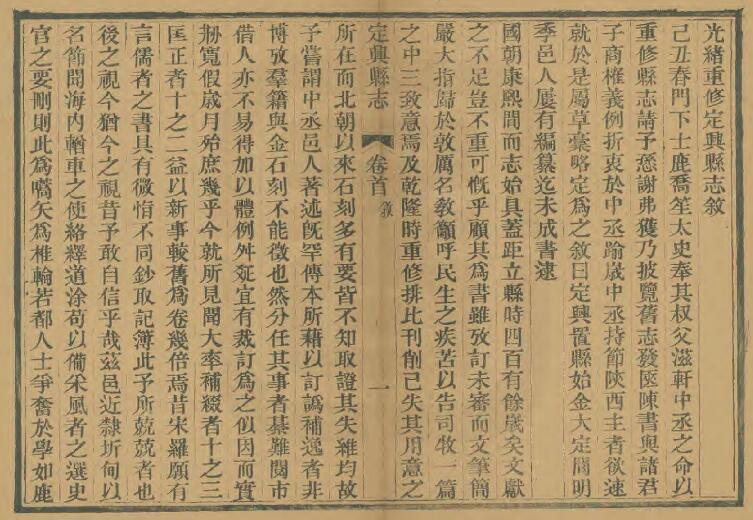 光緒重修定興縣志敘
己丑春門下士鹿喬笙太史奉其叔父滋軒中丞之命以
重修縣志請予憑謝弗獲乃披覽舊志發篋陳書與諸君
子商榷義例折衷於中丞踰歲中丞持節陝西主者欲速
就於是屬草稾略定爲之敘曰定興置縣始金大定間明
季邑人屢有編纂迄未成書逮
國朝康熙間而志始具蓋距立縣時四百有餘歲矣文獻
之不足豈不重可慨乎顧其爲書雖攷訂未審而文筆簡
嚴大指歸於敦厲名敎籲呼民生之疾苦以告司牧一篇
之中三致意焉及乾隆時重修排比刊削已失其用意之
定興縣志
卷首
敘
一
所在而北朝以來石刻多有要皆不知取證其失維均故
予嘗謂中丞邑人著述旣罕傳本所藉以訂譌補逸者非
博攷羣籍與金石刻不能徵也然分任其事者綦難閱市
借人亦不易得加以體例舛疑宜有裁訂爲之似因而實
剙寬假歲月殆庶幾乎今就所見聞大率補綴者十之三
匡正者十之二益以新事較舊爲卷幾倍焉昔宋羅願有
言儒者之書具有微恉不同鈔取記簿此予所兢兢者也
後之視今猶今之視昔予敢自信乎哉茲邑近隸圻甸以
名節聞海內輶車之使絡繹道涂苟以備采風者之選史
官之要刪則此爲嚆矢爲椎輪若都人士爭奮於學如鹿